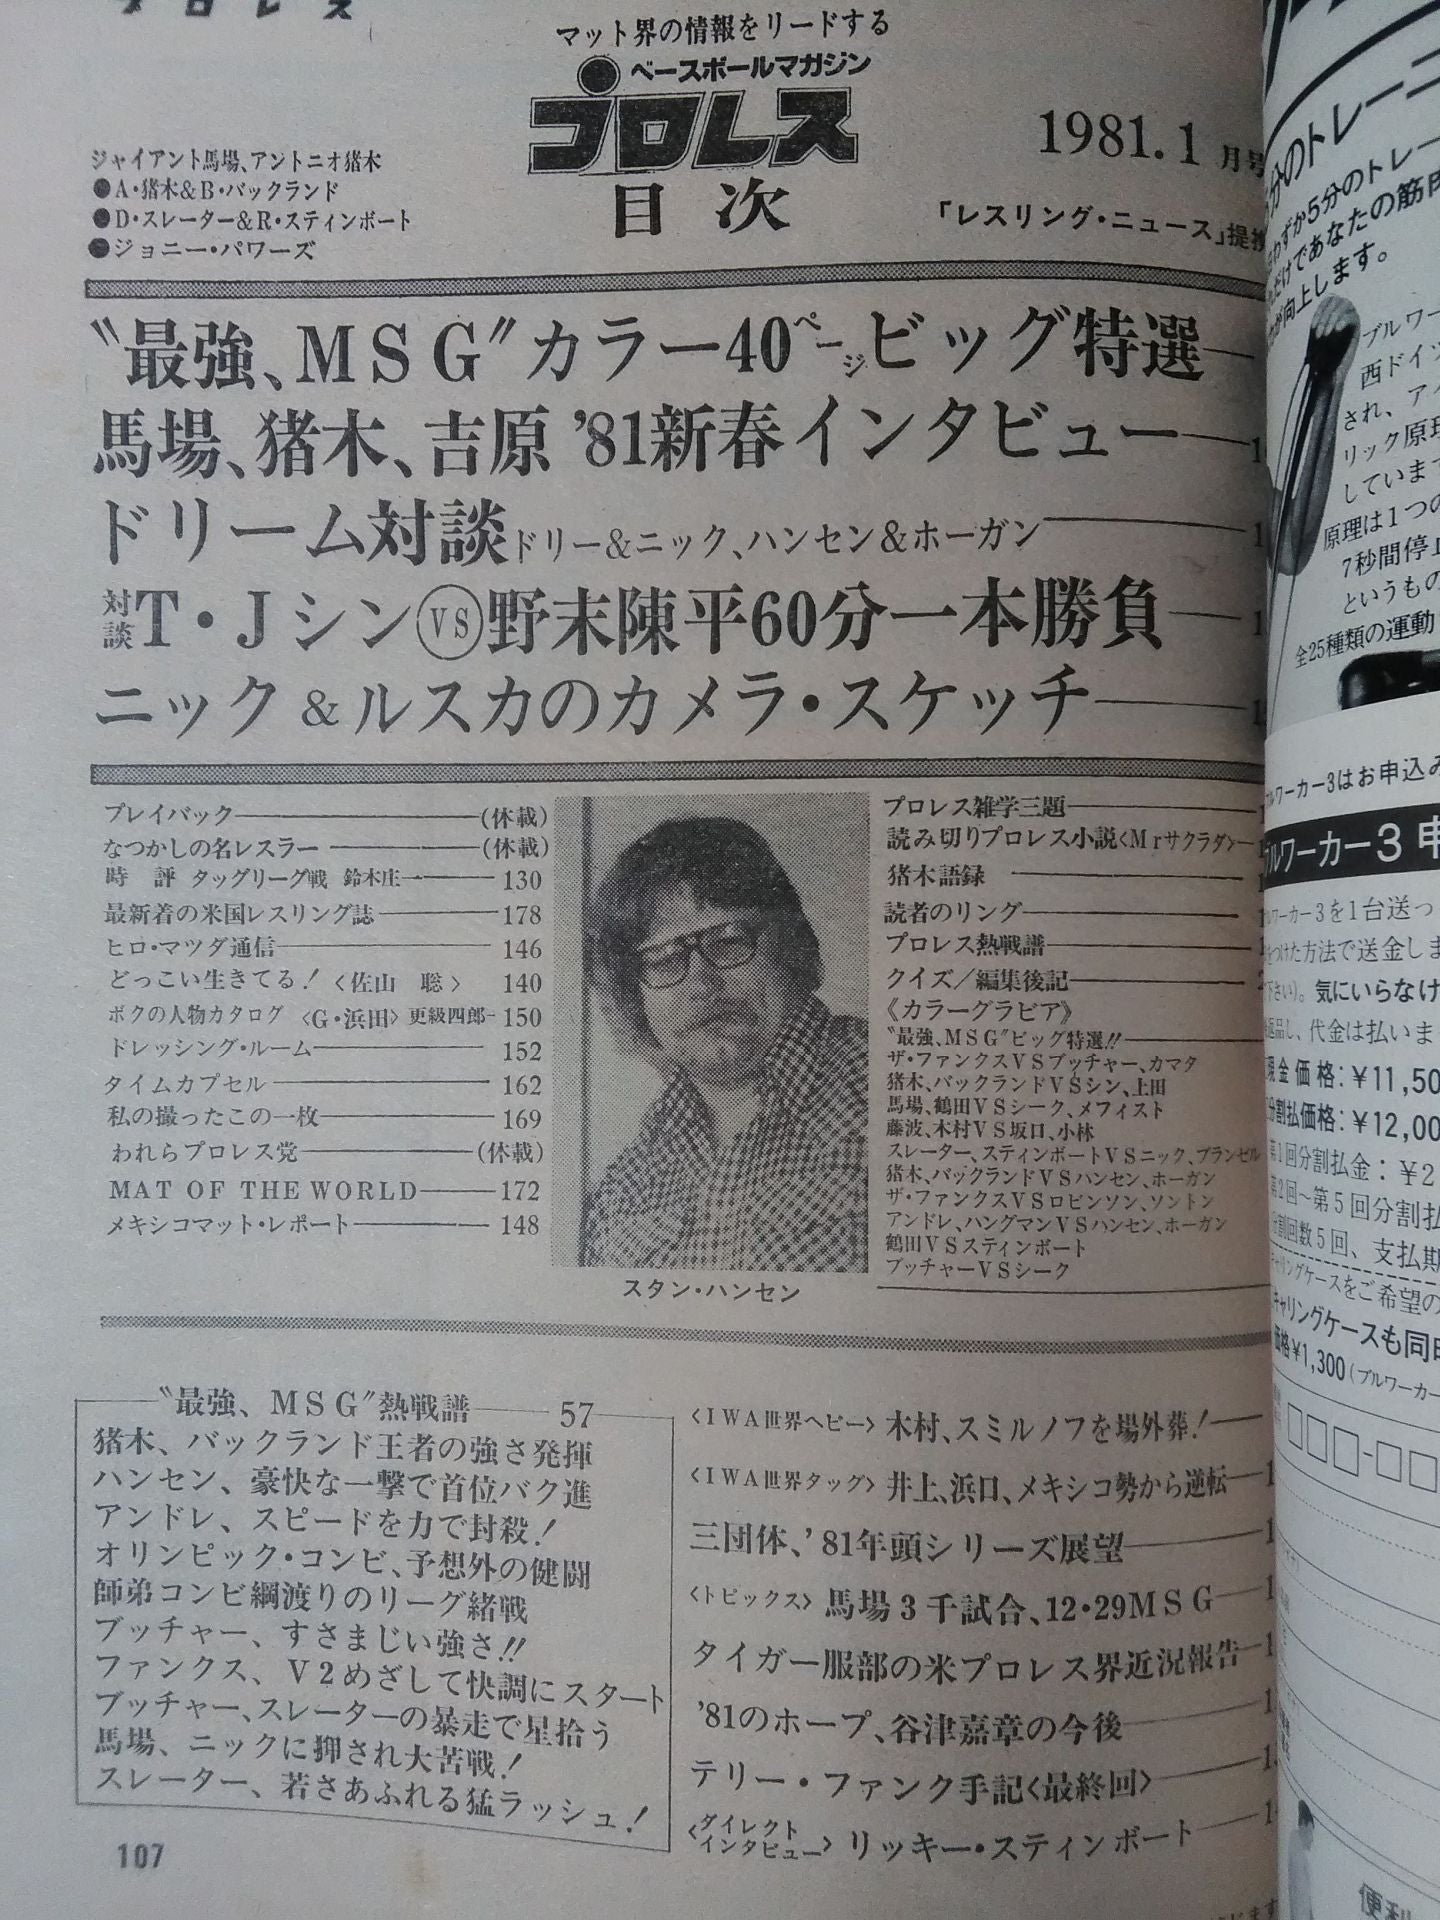 プロレス
マット界の情報をリードする
ベースボールマガジン
プロレス
目次
1981.1月号
「レスリング・ニュース」提
ジャイアント馬場、アントニオ猪木
●A・猪木&B・バックランド
●D・スレーター&R・スティンボート
●ジョニー・パワーズ
〝最強、MSG〞カラー40ページビッグ特選
馬場、猪木、吉原 '81新春インタビュー
ドリーム対談ドリー&ニック、ハンセン&ホーガン
対談T・JシンVS野末陳平60分一本勝負
ニック&ルスカのカメラ・スケッチ
プレイバック(休載)
なつかしの名レスラー(休載)
時評 タッグリーグ戦 鈴木庄一 130
最新着の米国レスリング誌 178
ヒロ・マツダ通信 146
どっこい生きてる!〈佐山 聡〉 140
ボクの人物カタログ〈G・浜田〉更級四郎 150
ドレッシング・ルーム 152
タイムカプセル 162
私の撮ったこの一枚 169
われらプロレス党(休載)
MAT OF THE WORLD 172
メキシコマット・レポート 148
スタン・ハンセン
プロレス雑学三題
読み切りプロレス小説〈Mrサクラダ〉
猪木語録
読者のリング
プロレス熱戦譜
クイズ/編集後記
《カラーグラビア》
〝最強、MSG〞ビッグ特選!!
ザ・ファンクスVSブッチャー、カマタ
猪木、バックランドVSシン、上田
馬場、鶴田VSシーク、メフィスト
藤波、木村VS坂口、小林
スレーター、スティンボートVSニック、ブランゼル
猪木、バックランドVSハンセン、ホーガン
ザ・ファンクスVSロビンソン、ソントン
アンドレ、ハングマンVSハンセン、ホーガン
鶴田VSスティンボート
ブッチャーVSシーク
〝最強、MSG〞熱戦譜 57
猪木、バックランド王者の強さ発揮
ハンセン、豪快な一撃で首位バク進
アンドレ、スピードを力で封殺!
オリンピック・コンビ、予想外の健闘
師弟コンビ綱渡りのリーグ緒戦
ブッチャー、すさまじい強さ!!
ファンクス、V2めざして快調にスタート
ブッチャー、スレーターの暴走で星拾う
馬場、ニックに抑され大苦戦!
スレーター、若さあふれる猛ラッシュ!
〈IWA世界ヘビー〉木村、スミルノフを場外葬!
〈IWA世界タッグ〉井上、浜口、メキシコ勢から逆転
三団体、'81年頭シリーズ展望
〈トピックス〉馬場3千試合、12・29MSG
タイガー服部の米プロレス界近況報告
'81のホープ、谷津嘉章の今後
テリー・ファンク手記〈最終回〉
〈ダイレクトインタビュー〉リッキー・スティンボート
107
分のトレーニ
わずか5分のトレー
だけであなたの筋肉
が向上します。
ブルワー
西ドイツ
され、アイ
リック原理
していまで
原理は1つの
7秒間停止
というもの
全25種類の運動
ブルワーカー3はお申込み
ブルワーカー3申
ルワーカー3を1台送っ
をつけた方法で送金しま
下さい)。気にいらなけ
返品し、代金は払いま
現金価格:¥11,50
分割払価格:¥12,00
第1回分割払金:¥2
第2回〜第5回分割払
分割回数5回、支払期
キャリングケースをご希望の
キャリングケースも同時
価格¥1,300(ブルワーカー
便利